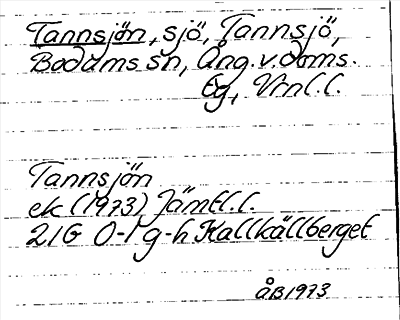 Tannsjön, sjö, Tannsjö,
Bodums sn, Ång.v.doms.
Eg, Vrnl.l.
Tannsjön
ek (1973) Jämtl.l.
21G 0-1 g-h Kallkällberget
ÅB1973